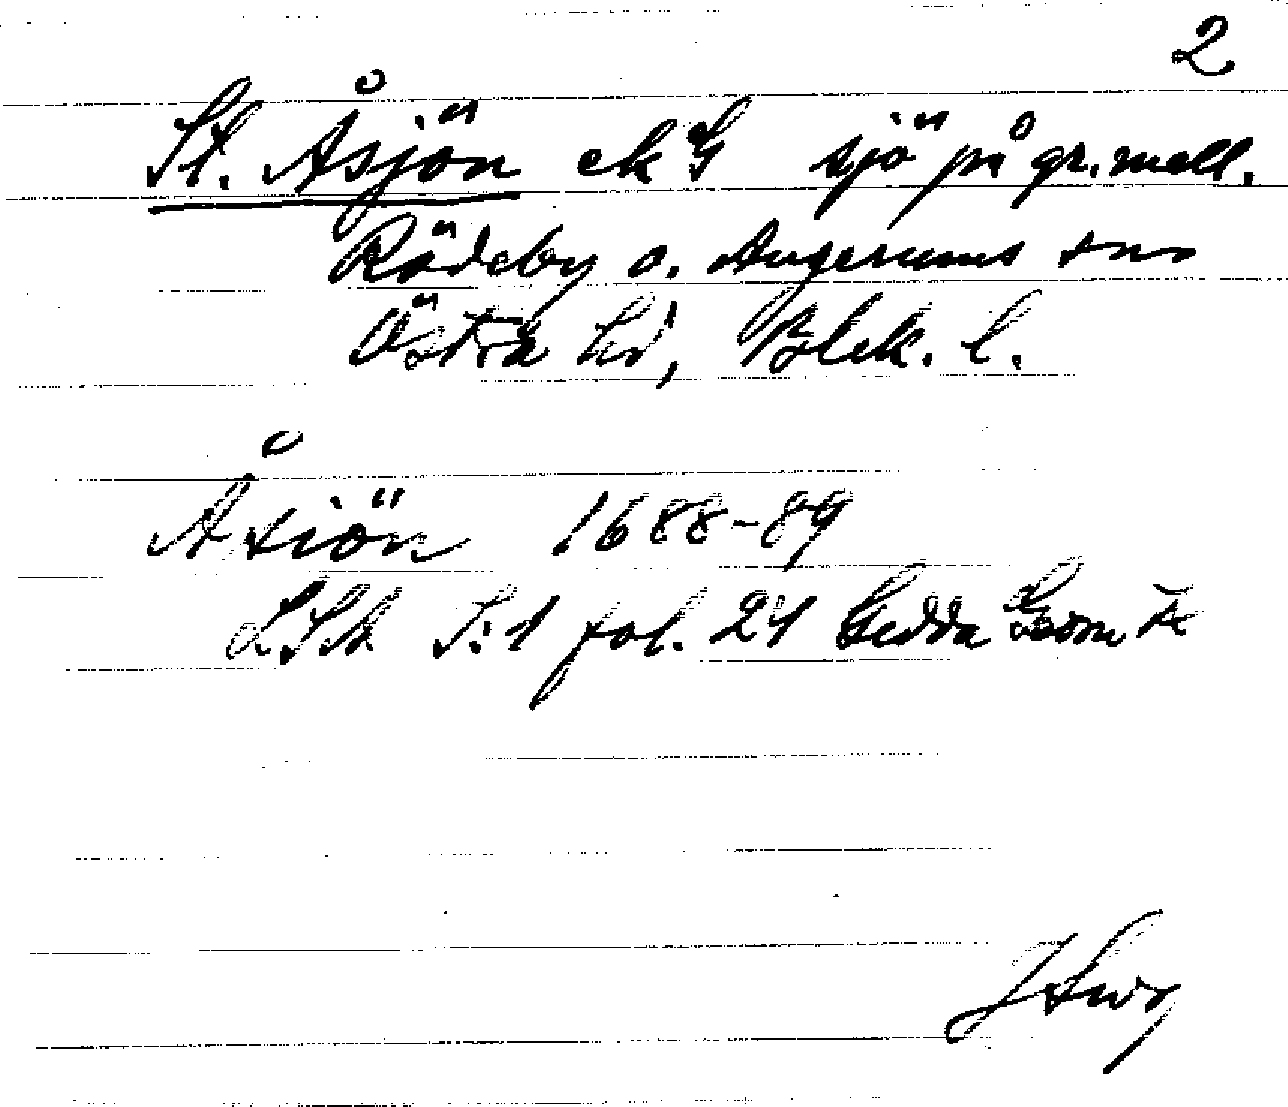 2
St. Åsjön ek G sjö på gr. mell.
Rödeby o. Augerums snr
Östra hd, Blek. l.
Åsiön 1688-89
LSA S:1 fol. 24 Gedda